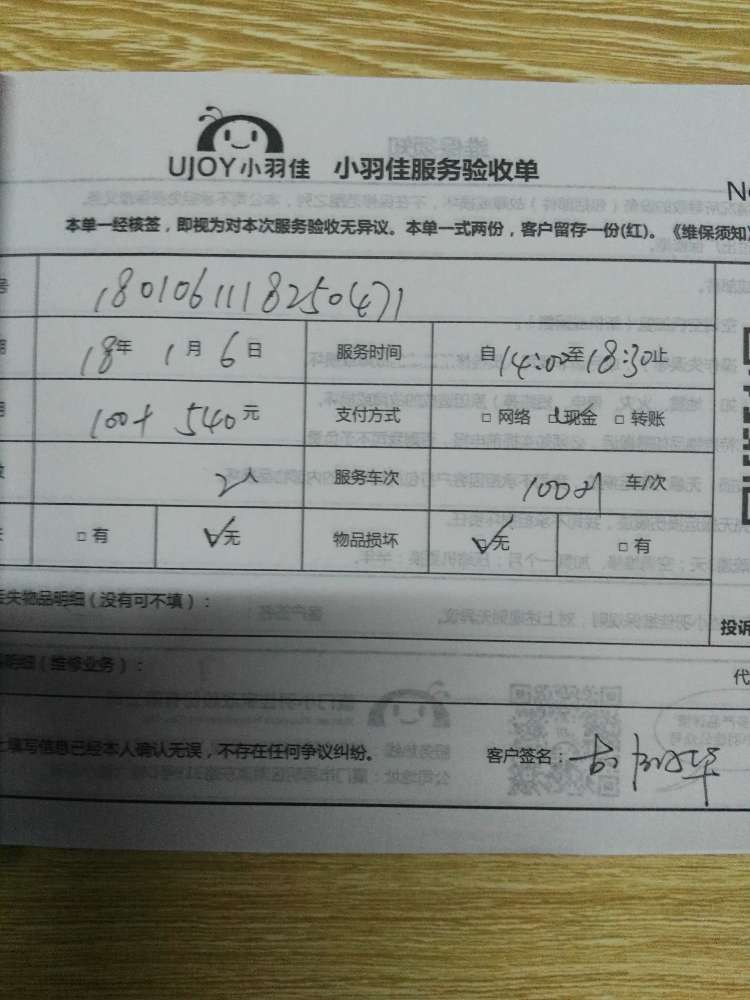 UJOY小羽佳 小羽佳服务验收单
N
本单一经核签，即视为对本次服务验收无异议。本单一式两份，客户留存一份(红)。《维保须知》
号 1801061118250471
期 18年 1月 6日 服务时间 自14:00至18:30止
用 100+ 540元 支付方式 □ 网络 □ 现金 □ 转账
2人 服务车次 车/次
□ 有 □ 无 物品损坏 □ 无 □ 有
丢失物品明细（没有可不填）：
投诉
明细（维修业务）：
代
上填写信息已经本人确认无误，不存在任何争议纠纷。 客户签名：